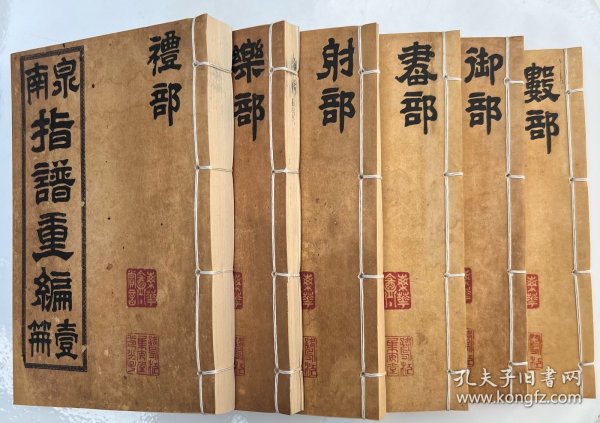 泉南
指譜重編
壹冊
禮部
樂部
射部
書部
御部
數部
孔夫子旧书网
www.kongfz.com